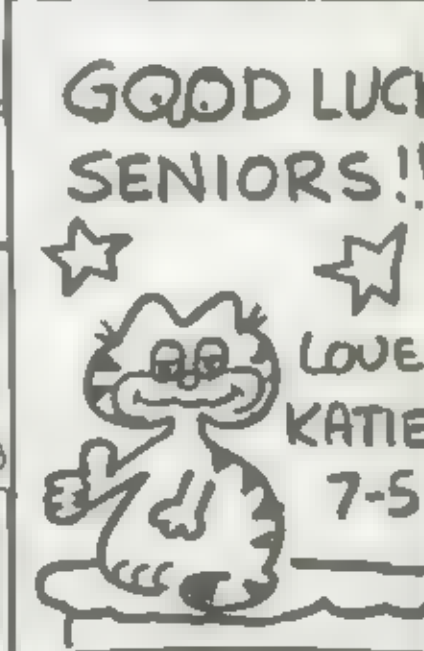 GOOD LUCK
SENIORS!!
LOVE
KATIE
7-5